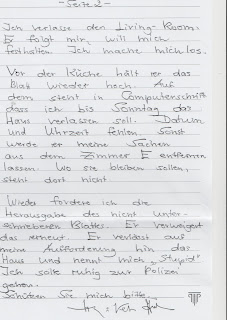 - Seite 2 -
Ich verlasse den Living-Room.
Er folgt mir, will mich
festhalten. Ich mache mich los.
Vor der Küche hält er das
Blatt wieder hoch. Auf
dem steht in Computerschrift
dass ich bis Sonntag das
Haus verlassen soll. Datum
und Uhrzeit fehlen. Sonst
werde er meine Sachen
aus dem Zimmer E entfernen
lassen. Wo sie bleiben sollen,
steht dort nicht.
Wieder fordere ich die
Herausgabe des nicht unter-
schriebenen Blattes. Er verweigert
das erneut. Er verlässt auf
meine Aufforderung hin das
Haus und nennt mich „Stupid"
Ich solle ruhig zur Polizei
gehen.
Schützen Sie mich bitte.